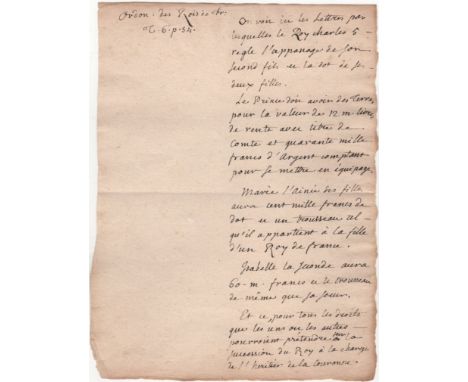 Ordon. des Rois de fr.
T. 6. p. 54.
On voit ici les Lettres par
lesquelles le Roy charles 5
regle l'appanage de son
second fils et la dot de se
deux filles.
Le Prince doit avoir des Terres
pour la valeur de 12 m. livre
de rente avec titre de
comte et quarante mille
francs d'Argent comptant
pour se mettre en équipage.
Marie l'ainée des filles
aura cent mille francs de
dot et un trousseau tel
qu'il appartient à la fille
d'un Roy de france.
Isabelle la seconde aura
60 m. francs et le trousseau
de même que sa soeur.
Et ce pour tous les droits
que les uns ou les autres
pourroient prétendre à la
succession du Roy à la charge
de l'heritier de la couronne.